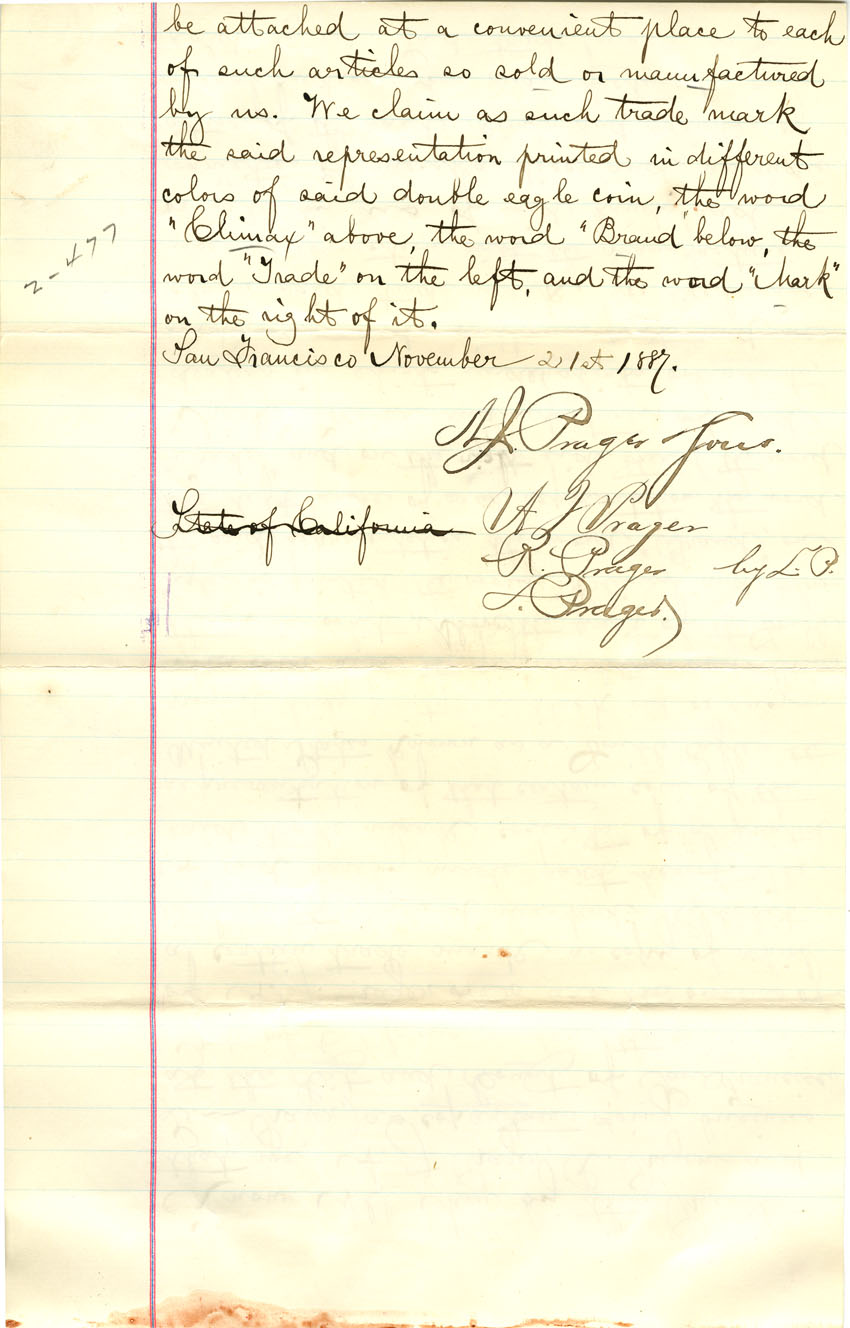 be attached at a convenient place to each
of such articles so sold or manufactured
by us. We claim as such trade mark
the said representation printed in different
colors of said double eagle coin, the word
"Climax" above, the word "Brand" below, the
word "Trade" on the left, and the word "Mark"
on the right of it.
San Francisco November 21st 1887.
2-477
Prager Sons.
State of California
A J Prager
R. Prager by L. P.
L. Prager.